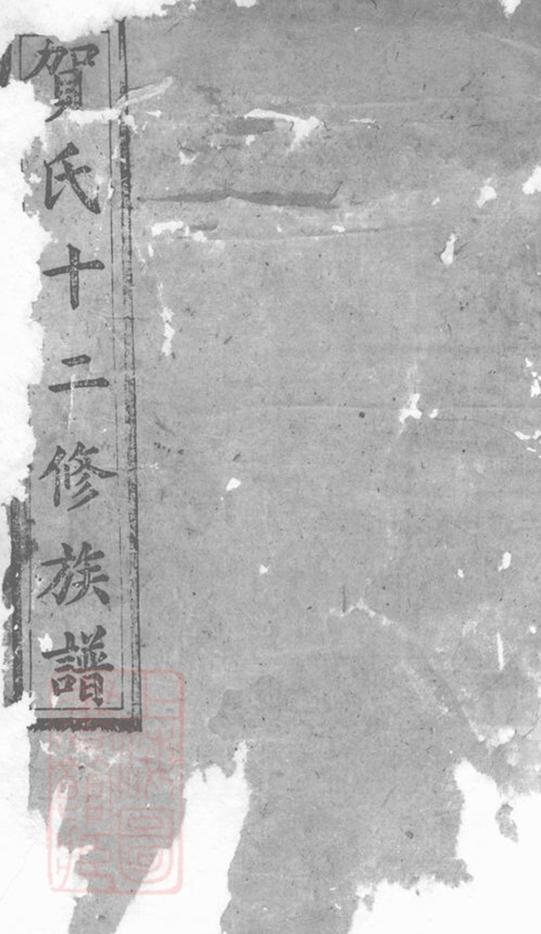 賀氏十二修族譜